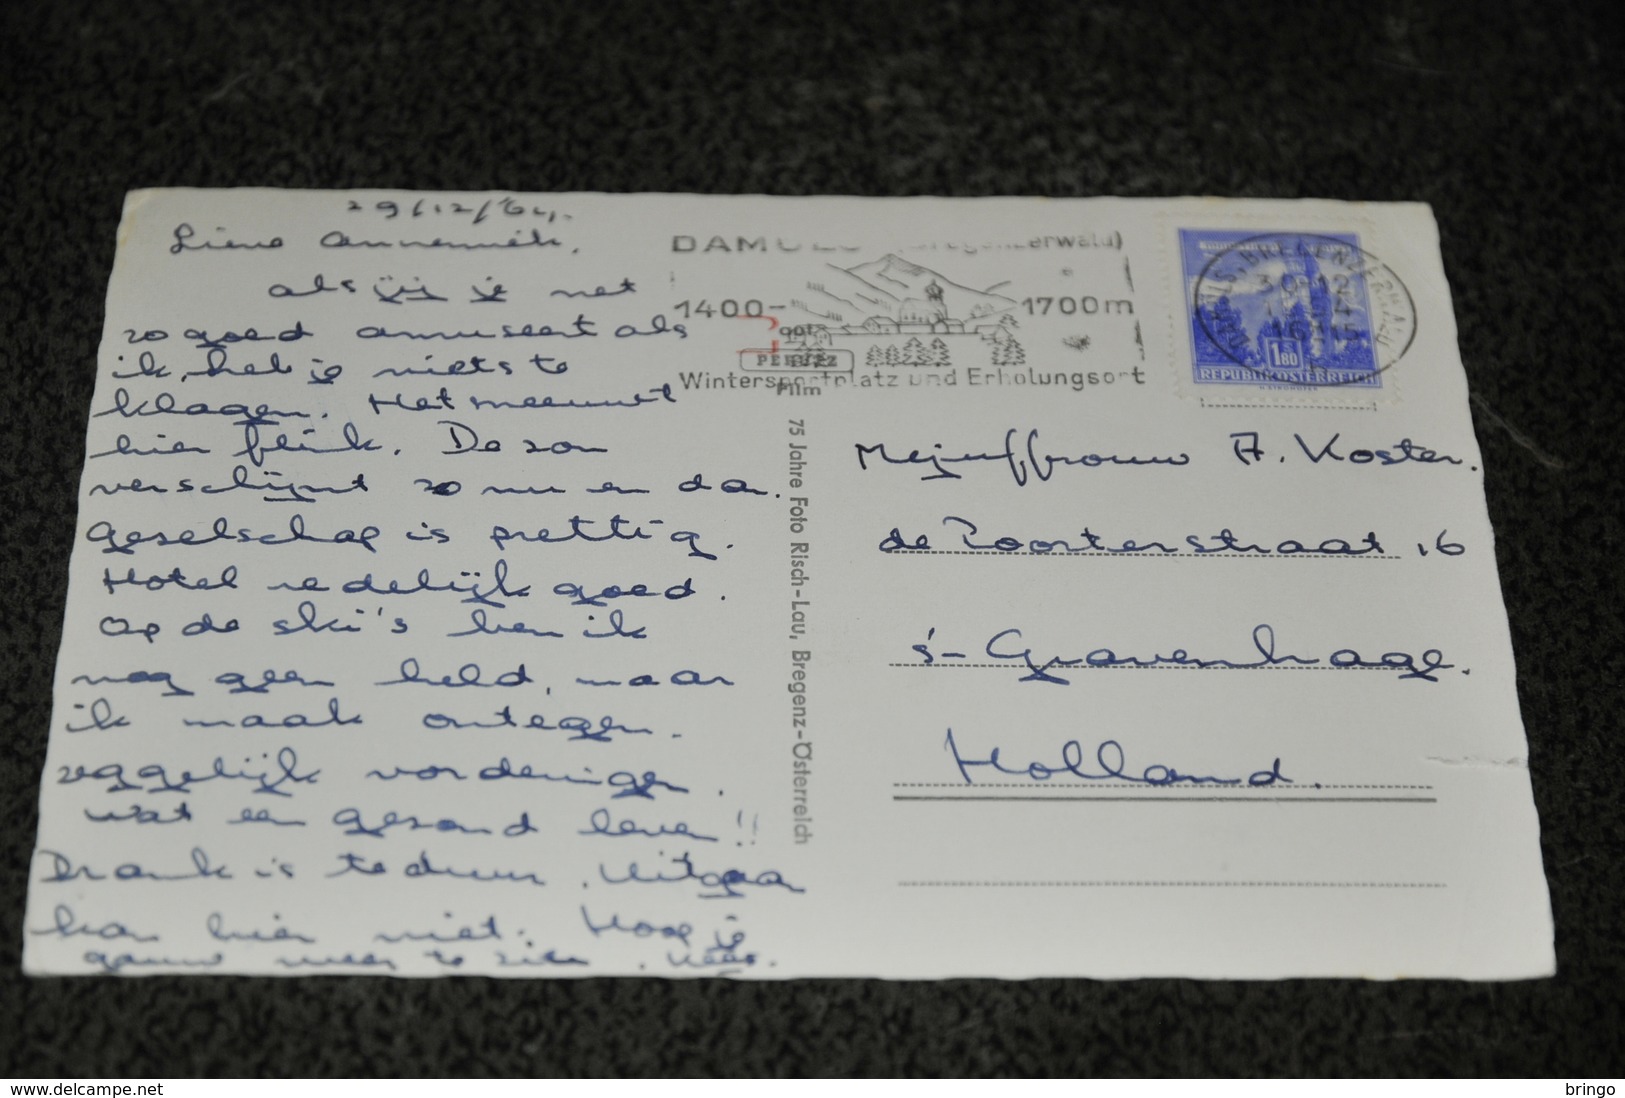 29/12/'64.
Lieve Annemiek,
als jij je net
zo goed amuseert als
ik, heb je niets te
klagen. Het sneeuwt
hier flink. De zon
verschijnt zo nu en dan.
Gezelschap is prettig.
Hotel redelijk goed.
Op de ski's ben ik
nog geen held, maar
ik maak ontegen-
zeggelijk vorderingen.
Wat een gezond leven!!
Drank is te duur. Uitgaan
kan hier niet. Hoop je
gauw weer te zien. Kees.
DAMÜLS (Bregenzerwald)
1400-1700m
Wintersportplatz und Erholungsort
PERUTZ
Film
75 Jahre Foto Risch-Lau, Bregenz-Österreich
DAMÜLS, BREGENZERWALD
30.12
1.80
REPUBLIK ÖSTERREICH
Mejuffrouw A. Koster.
de Poorterstraat 16
's-Gravenhage.
Holland.
www.delcampe.net
bringo